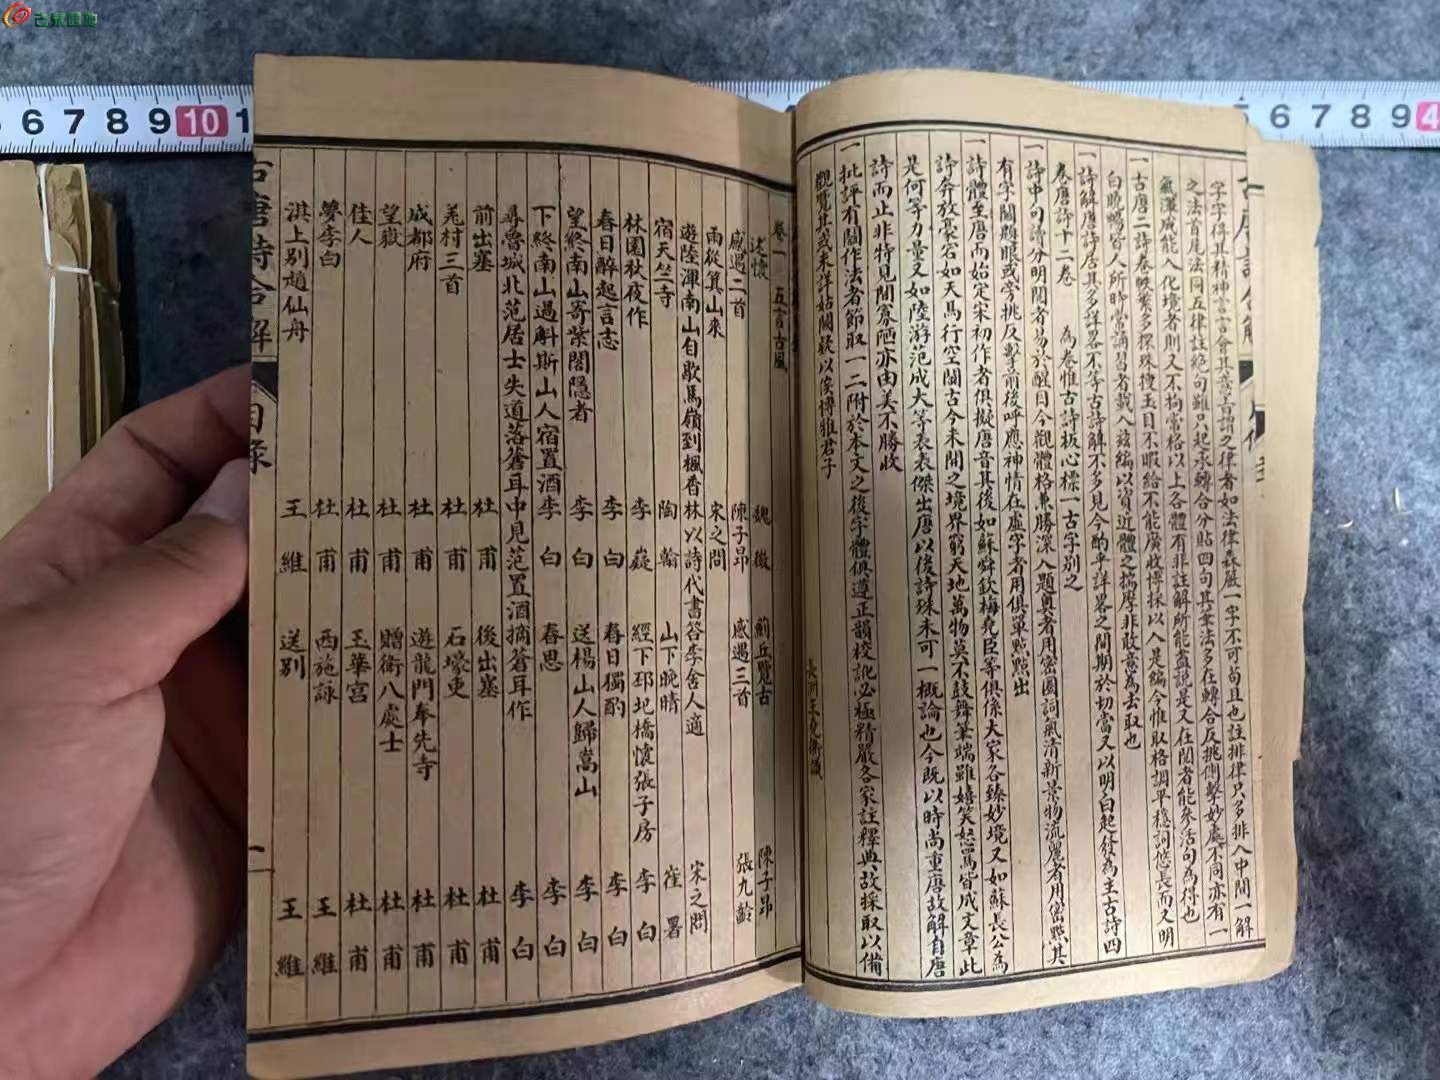 字字得其精神言言會其意旨謂之律者如法律森嚴一字不可苟且也註排律只多排八中間一解
之法首尾法同五律註絕句雖只起承轉合分貼四句其章法多在轉合反挑側擊妙處不同亦有一
氣渾成能入化境者則又不拘常格以上各體有非註解所能盡說是又在閱者能參活句為得也
一古唐二詩卷帙繁多探珠搜玉目不暇給不能廣收博採以入是編今惟取格調平穩詞悠長而又明
白曉暢皆人所時常誦習者載入茲編以資近體之揣摩非敢意為去取也
一詩解唐詩居其多詳畧不等古詩解不多見今酌乎詳畧之間期於切當又以明白起發為主古詩四
卷唐詩十二卷 為卷惟古詩板心標一古字別之
一詩中句讀分明閱者易於醒目今觀體格兼勝深入題真者用密圈詞氣清新景物流麗者用密點其
有字關鍵眼或旁挑反擊前後呼應神情在虛字者用俱單點點出
一詩體至唐而始定宋初作者俱擬唐音其後如蘇舜欽梅堯臣等俱係大家各臻妙境又如蘇長公為
詩奔放豪宕如天馬行空闢古今未開之境界窮天地萬物莫不鼓舞筆端雖嬉笑怒罵皆成文章此
是何等力量又如陸游范成大等表表傑出唐以後詩殊未可一概論也今既以時尚重唐故解自唐
詩而止非特見聞寡陋亦由美不勝收
一批評有關作法者節取一二附於本文之後字體俱遵正韻校訛必極精嚴各家註釋典故採取以備
觀覽其或未詳姑闕疑以俟博雅君子
卷一 五言古風
述懷 魏徵 薊丘覽古 陳子昂
感遇二首 陳子昂 感遇三首 張九齡
雨從箕山來 宋之問
遊陸渾南山自歇馬嶺到楓香林以詩代書答李舍人適 宋之問
宿天竺寺 陶翰 山下晚晴 崔署
林園秋夜作 李嶷 經下邳圯橋懷張子房 李白
春日醉起言志 李白 春日獨酌 李白
望終南山寄紫閣隱者 李白 送楊山人歸嵩山 李白
下終南山過斛斯山人宿置酒 李白 春思 李白
尋魯城北范居士失道落蒼耳中見范置酒摘蒼耳作 李白
前出塞 杜甫 後出塞 杜甫
羌村三首 杜甫 石壕吏 杜甫
成都府 杜甫 遊龍門奉先寺 杜甫
望嶽 杜甫 贈衛八處士 杜甫
佳人 杜甫 玉華宮 杜甫
夢李白 杜甫 西施詠 王維
淇上別趙仙舟 王維 送別 王維
古唐詩合解 目錄 一
6 7 8 9 10 1
5 6 7 8 9 4